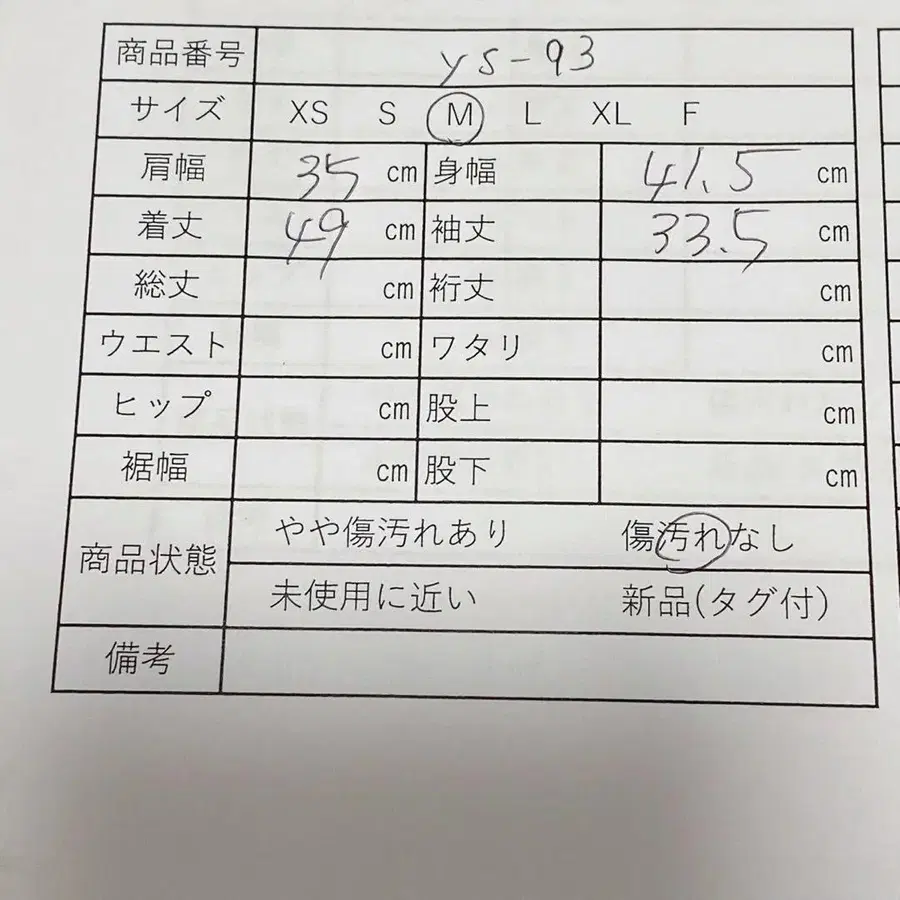 商品番号 ys-93
サイズ XS S M L XL F
肩幅 35 cm 身幅 41.5 cm
着丈 49 cm 袖丈 33.5 cm
総丈 cm 裄丈 cm
ウエスト cm ワタリ cm
ヒップ cm 股上 cm
裾幅 cm 股下 cm
商品状態
やや傷汚れあり 傷汚れなし
未使用に近い 新品(タグ付)
備考